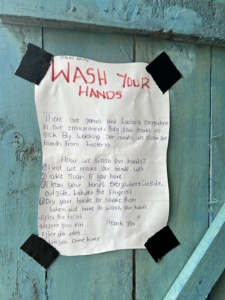 WASH YOUR
HANDS
There are germs and bacteria everywhere
in our environment they can make us
sick By washing our hands we
hands from bacteria
How we wash our hands?
1) First we make our hands wet
2) Take soap if you have
3) Clean your hands everywhere (inside,
outside, between the fingers)
4) Dry your hands or shake them
When we have to wash our hands
After the toilet
Before you eat
Thank You
After you play
you come home